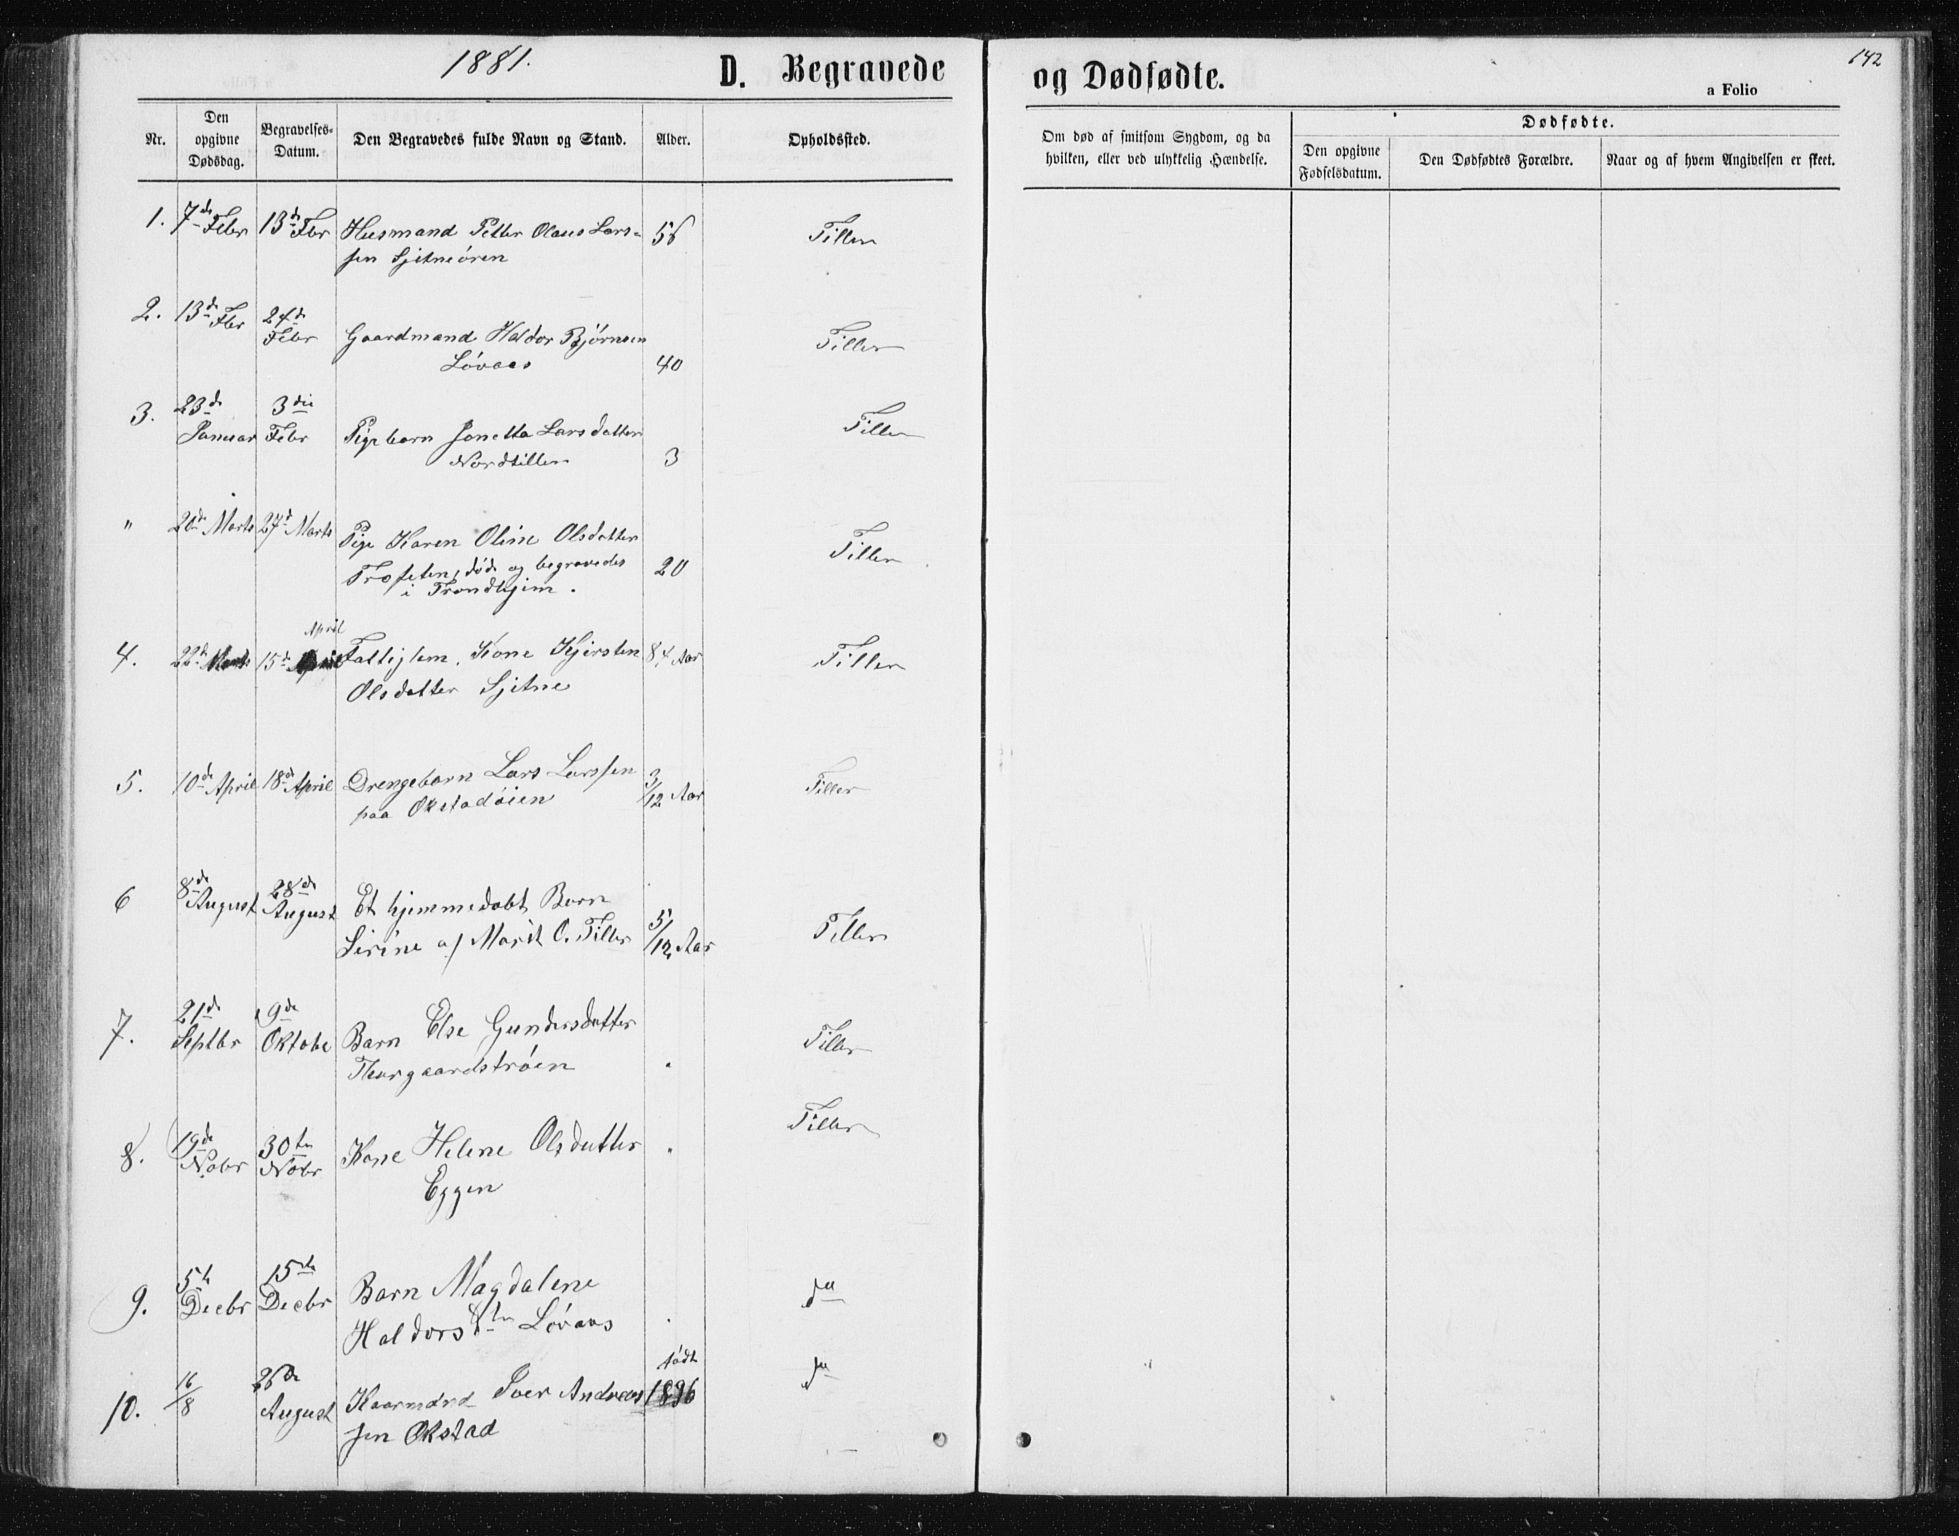 1881.
D. Begravede
og Dødfødte.
142
a Folio
Nr.
Den opgivne Dødsdag.
Begravelses-Datum.
Den Begravedes fulde Navn og Stand.
Alder.
Opholdssted.
Om død af smitsom Sygdom, og da hvilken, eller ved ulykkelig Hændelse.
Dødfødte.
Den opgivne Fødselsdatum.
Den Dødfødtes Forældre.
Naar og af hvem Angivelsen er skeet.
1. 7de Febr 13de Fbr Husmand Petter Olaus Lars- 56 Tiller
sen Sjetneören
2. 13de Fbr 24de Febr Gaardmand Haldor Björnsen Tiller
Lövaas 40
3. 23de Januar 3die Febr Pigebarn Jonetta Larsdatter Tiller
Nordtiller 3
" 20de Marts 27de Marts Pige Karen Oline Olsdatter Tiller
døde og begravedes 20
i Trondhjem.
April
4. 22de Marts 15de April Fattiglem. Kone Kjersten 84 Aar Tiller
Olsdatter Sjetne
5. 10de April 18de April Drengebarn Lars Larssen 3/12 Aar Tiller
paa Okstadöien
6 8de August 28de August Et hjemmedøbt Barn
Sirine af Marit O. Tiller 5/12 Aar Tiller
7. 21de Septbr 9de Oktobe Barn Else Gundersdatter Tiller
Thorgaardströen
8. 19de Nobr 30te Nobr Kone Helene Olsdatter Tiller
Eggen
9. 5te Decbr 15de Decbr Barn Magdalene
Haldorsdtr Lövaas
født
10. 16/8 26de August Kaarmand Iver Andreas 1896
sen Okstad